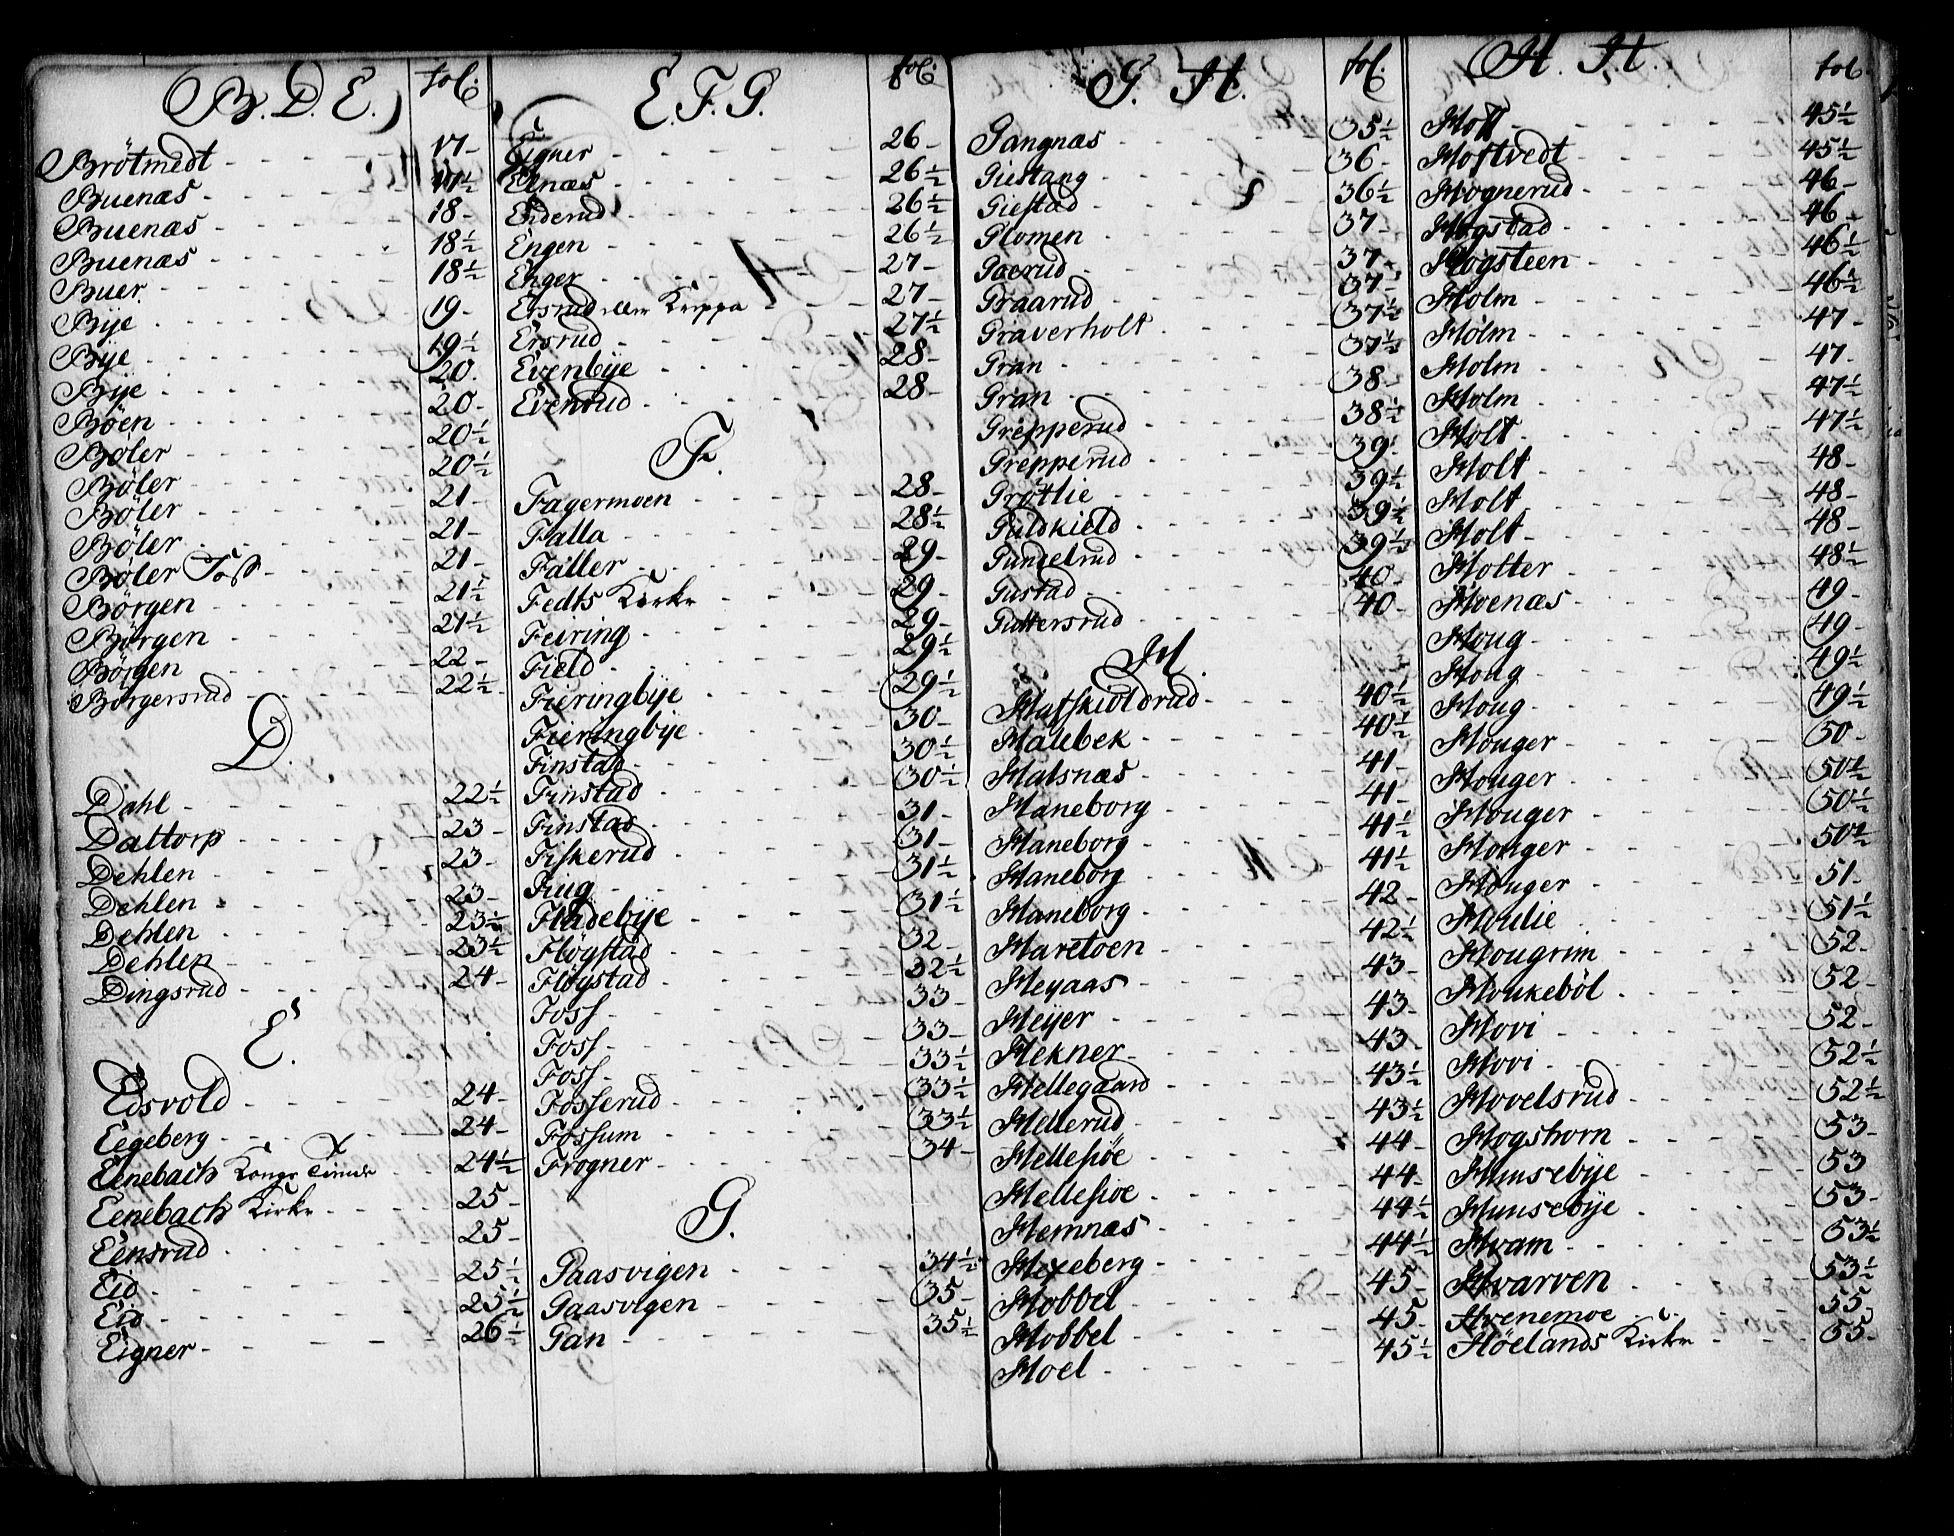 B. D. E. fol:
Brötmedt - 17-
Buenæs - 17½
Buenæs - 18-
Buenæs - 18½
Buer - 18½
Bÿe - 19-
Bÿe - 19½
Bÿe - 20.
Böen - 20-
Böler - 20½
Böler - 20½
Böler - 21-
Böler - 21-
Böler Foss - 21-
Börgen - 21½
Börgen - 21½
Börgen - 22-
Börgersrud - 22½
D.
Dahl - 22½
Daltorp - 23-
Dehlen - 23-
Dehlen - 23-
Dehlen - 23½
Dehlen - 23½
Dingsrud - 24-
E.
Edsvold - 24-
Eegeberg - 24-
Eenebach Kongs Tiende - 24½
Eenebach Kirke - 25-
Eensrud - 25-
Eid - 25½
Eid - 25½
Eigner - 26½
E. F. G. fol:
Eigner - 26-
Elnæs - 26½
Enderud - 26½
Engen - 26½
Enger - 27-
Ersrud eller Krippa - 27-
Ersrud - 27½
Evenbÿe - 28-
Evenrud - 28-
F.
Fagermoen - 28-
Falla - 28½
Faller - 29-
Fedts Kirke - 29-
Feiring - 29-
Field - 29½
Fieringbÿe - 29½
Fieringbÿe - 30-
Finstad - 30½
Finstad - 30½
Finstad - 31-
Fiskerud - 31-
Fiug - 31½
Fladebÿe - 31½
Flögstad - 32-
Flögstad - 32½
Foss - 33-
Foss - 33-
Foss - 33½
Fosserud - 33½
Fossum - 33½
Frogner - 34-
G.
Gaasvigen - 34½
Gaasvigen - 35-
Gan - 35½
G. H. fol.
Gangnæs - 35½
Giestang - 36-
Giestad - 36½
Glomen - 37-
Goerud - 37-
Graarud - 37-
Graverholt - 37½
Gran - 37½
Gran - 38-
Grepperud - 38½
Grepperud - 39-
Gröttie - 39½
Guldkield - 39½
Gundelrud - 39½
Gustad - 40-
Guttersrud - 40-
H.
Hafskiolderud - 40½
Halebek - 40½
Halsnæs - 41-
Haneborg - 41-
Haneborg - 41½
Haneborg - 41½
Haneborg - 42-
Haretoen - 42½
Heyaas - 43-
Heÿer - 43-
Hekner - 43-
Hellegaard - 43½
Hellerud - 43½
Hellesiöe - 44-
Hellesiöe - 44-
Hemnæs - 44½
Hexeberg - 44½
Hobbel - 45-
Hobbel - 45-
Hoel - 45½
H. H. fol.
Hoff - 45½
Hoftvedt - 45½
Hognerud - 46-
Hogstad - 46-
Hogsteen - 46½
Holm - 46½
Holm - 47-
Holm - 47-
Holm - 47½
Holt - 47½
Holt - 48-
Holt - 48-
Holt - 48-
Holter - 48½
Hoenæs - 49-
Houg - 49-
Houg - 49½
Houg - 49½
Houger - 50-
Houger - 50½
Houger - 50½
Houger - 50½
Houger - 51-
Houlie - 51½
Hougrim - 52-
Houkeböl - 52-
Hovi - 52-
Hovi - 52½
Hovelsrud - 52½
Hogshorn - 53-
Hunsebÿe - 53
Hunsebÿe - 53-
Hvam - 53½
Hvarven - 53½
Hvenemoe - 55-
Höelands Kirke - 55-